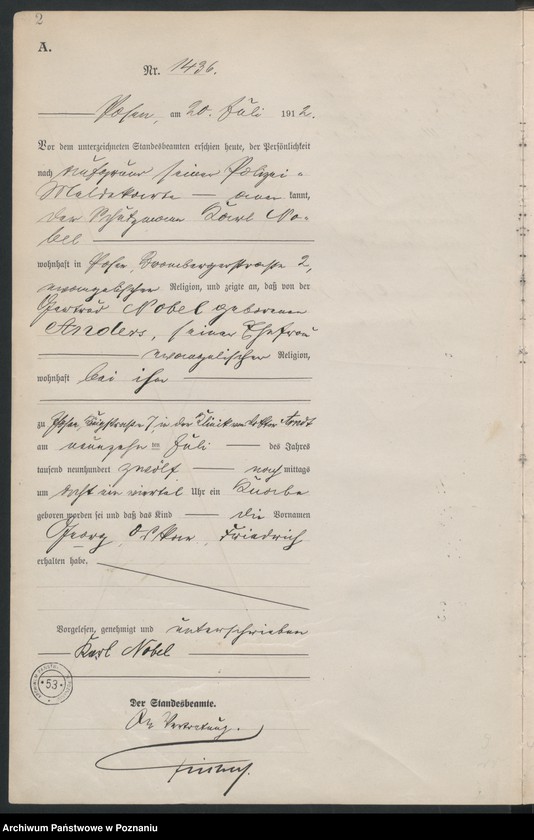 2
A.
Nr. 1436.
Posen, am 20. Juli 1912.
Vor dem unterzeichneten Standesbeamten erschien heute, der Persönlichkeit
nach auf Grund seiner Polizei-
Meldekarte — aner kannt,
der Schutzmann Karl No-
bel
wohnhaft in Posen, Brombergerstrasse 2,
evangelischer Religion, und zeigte an, daß von der
Gertrud Nobel geborenen
Anders, seiner Ehefrau
evangelischer Religion,
wohnhaft bei ihm
zu Posen, 7 in der Klinik
am neunzehn ten Juli — des Jahres
tausend neunhundert zwölf — nach mittags
um acht ein viertel Uhr ein Knabe
geboren worden sei und daß das Kind — die Vornamen
Georg, Oskar, Friedrich
erhalten habe.
Vorgelesen, genehmigt und unterschrieben
Karl Nobel
53
Der Standesbeamte.
In Vertretung.
Archiwum Państwowe w Poznaniu